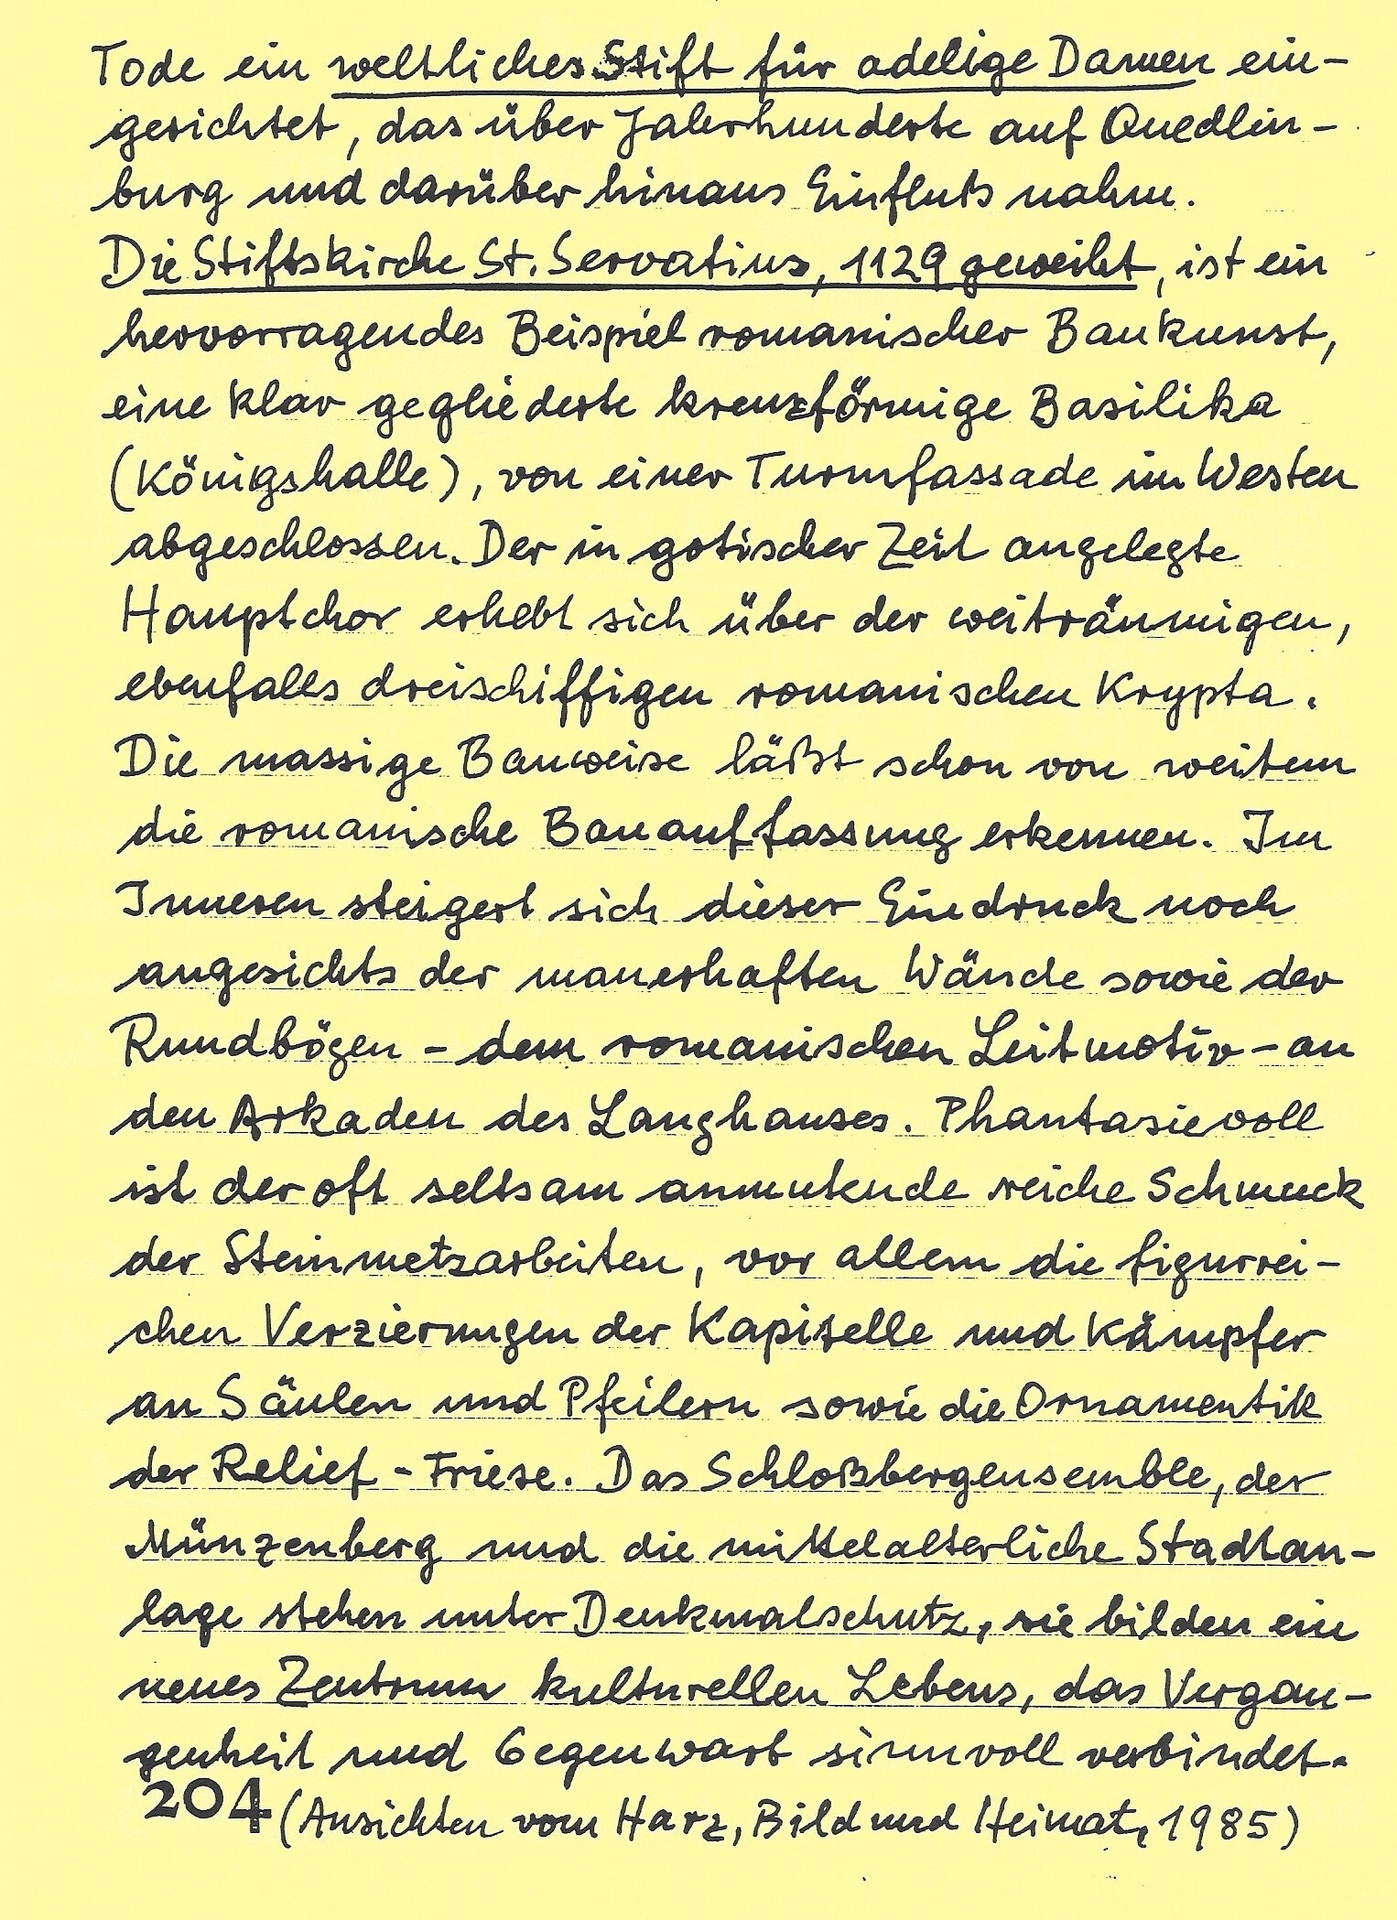 Tode ein weltliches Stift für adelige Damen ein-
gerichtet, das über Jahrhunderte auf Quedlin-
burg und darüber hinaus Einfluß nahm.
Die Stiftskirche St. Servatius, 1129 geweiht, ist ein
hervorragendes Beispiel romanischer Baukunst,
eine klar gegliederte kreuzförmige Basilika
(Königshalle), von einer Turmfassade im Westen
abgeschlossen. Der in gotischer Zeit angelegte
Hauptchor erhebt sich über der weiträumigen,
ebenfalls dreischiffigen romanischen Krypta.
Die massige Bauweise läßt schon von weitem
die romanische Bauauffassung erkennen. Im
Inneren steigert sich dieser Eindruck noch
angesichts der mauerhaften Wände sowie der
Rundbögen - dem romanischen Leitmotiv - an
den Arkaden des Langhauses. Phantasievoll
ist der oft seltsam anmutende reiche Schmuck
der Steinmetzarbeiten, vor allem die figurrei-
chen Verzierungen der Kapitelle und Kämpfer
an Säulen und Pfeilern sowie die Ornamentik
der Relief-Friese. Das Schloßbergensemble, der
Münzenberg und die mittelalterliche Stadtan-
lage stehen unter Denkmalschutz, sie bilden ein
neues Zentrum kulturellen Lebens, das Vergan-
genheit und Gegenwart sinnvoll verbindet.
204 (Ansichten vom Harz, Bild und Heimat, 1985)